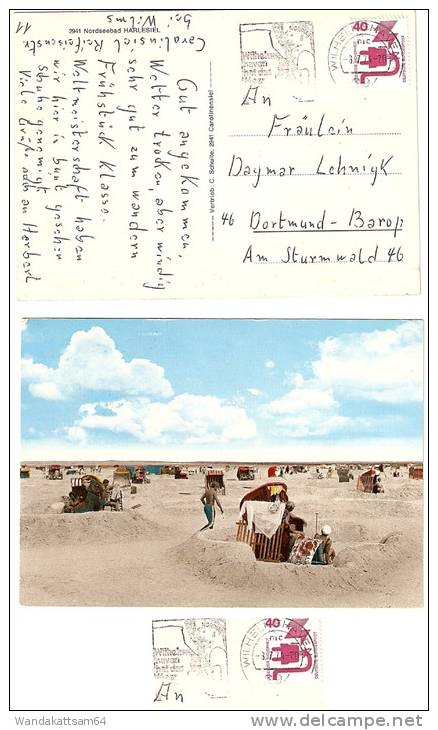 11
2941 Nordseebad HARLESIEL
Carolinsiel Reifeisenstr.
bei Wilms
Gut angekommen,
Wetter trocken, aber windig
sehr gut zum wandern
Frühstück Klasse.
Weltmeisterschaft haben
wir hier in bunt gesehen
Viele Grüße noch an Herbert
Vertrieb: C. Schulte, 2941 Carolinensiel
Wilhelms
haven
WILHELMSHAVEN
40
An
Fräulein
Dagmar Lehnigk
46 Dortmund-Barop
Am Sturmwald 46
Wilhelms
haven
WILHELMSHAVEN
40
An
Wandakattsam64